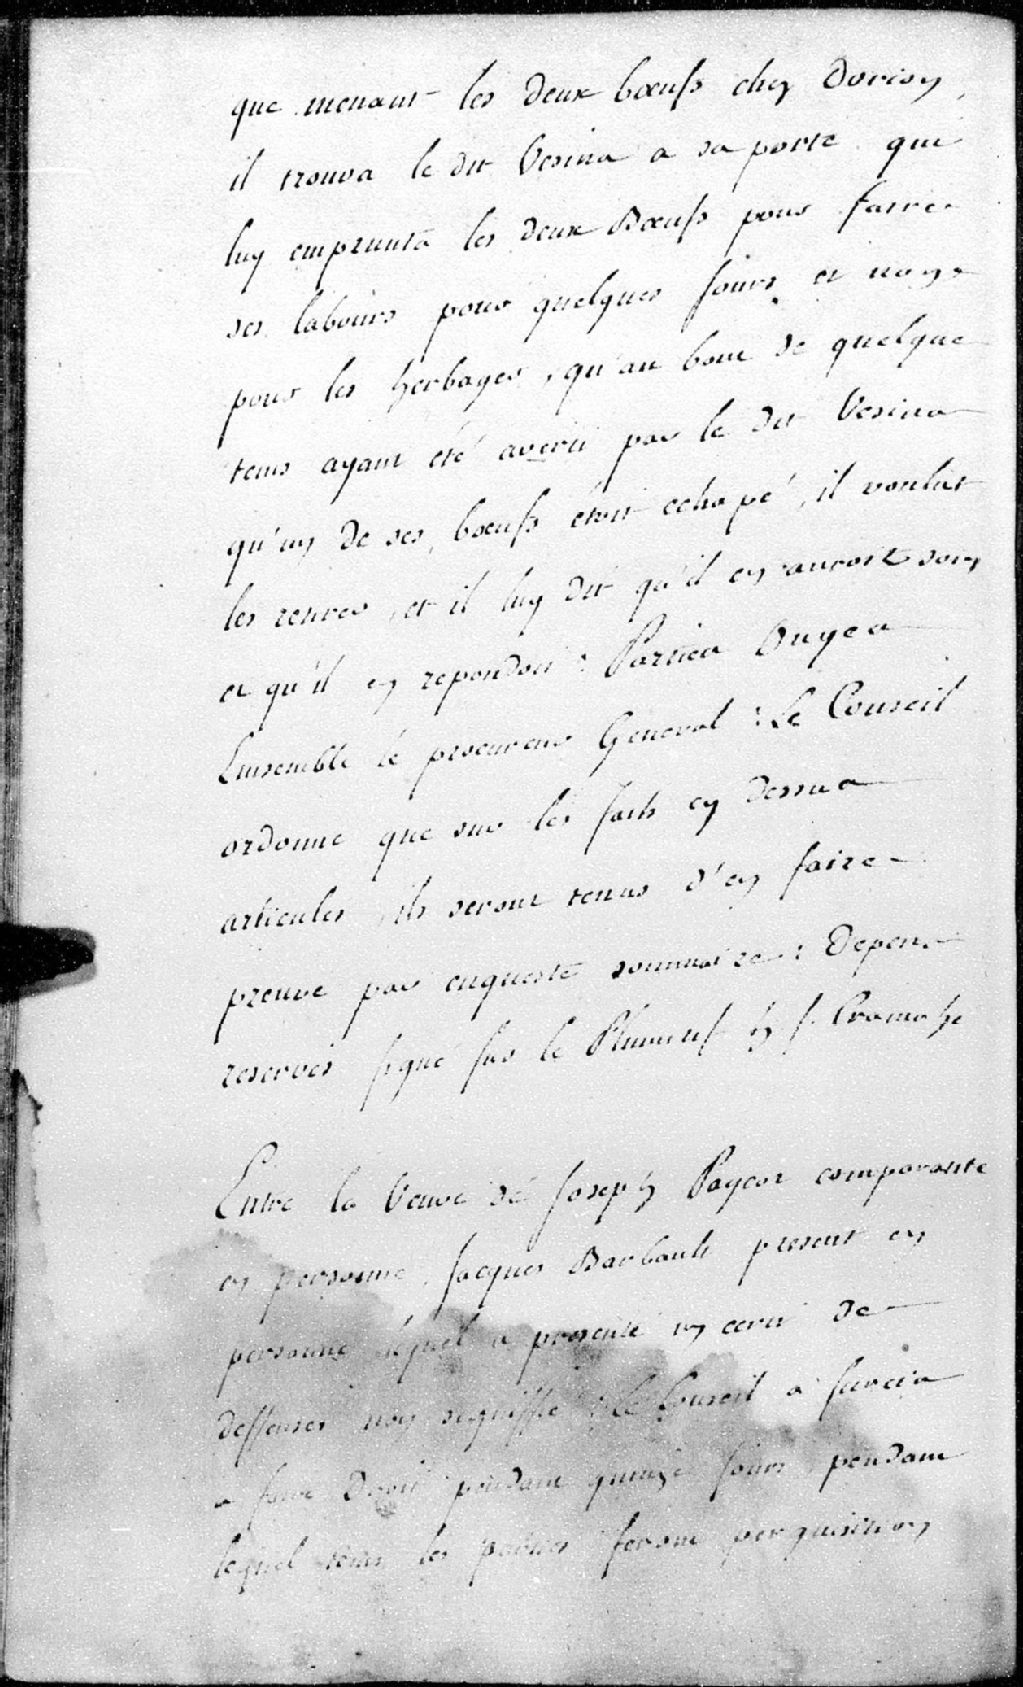 que menant les deux bœufs chez Dorion
il trouva le dit Vesina a sa porte qui
luy emprunta les deux Bœufs pour faire
ses labours pour quelques jours et non
pour les herbages, qu'au bout de quelque
tems ayant été averti par le dit Vesina
qu'un de ses bœufs étoit echapé, il voulut
les retirer, et il luy dit qu'il en auroit soin
et qu'il en repondoit : Parties Ouyes
Ensemble le procureur General : Le Conseil
ordonne que sur les faits cy dessus
articules, ils seront tenus d'en faire
preuve par enqueste sommaire : Depens
reservés signé sur le Plumitif
Entre la Veuve de Joseph Payeur comparante
en personne, Jacques Barbault present en
personne lequel a presenté un ecrit de
deffenses non signiffié : le Conseil a surcis
a faire Droit pendant quinze jours, pendant
lequel tems les parties feront perquisition